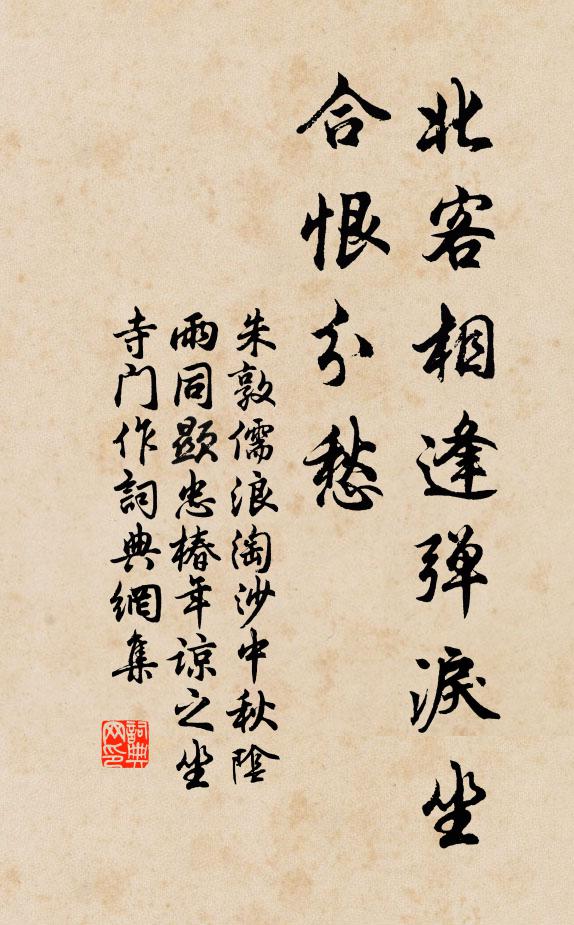 北客相逢弹淚坐
合恨分愁
朱敦儒浪淘沙中秋陰
雨同顯忠椿年諒之坐
寺门作詞典網集
詞典
网印